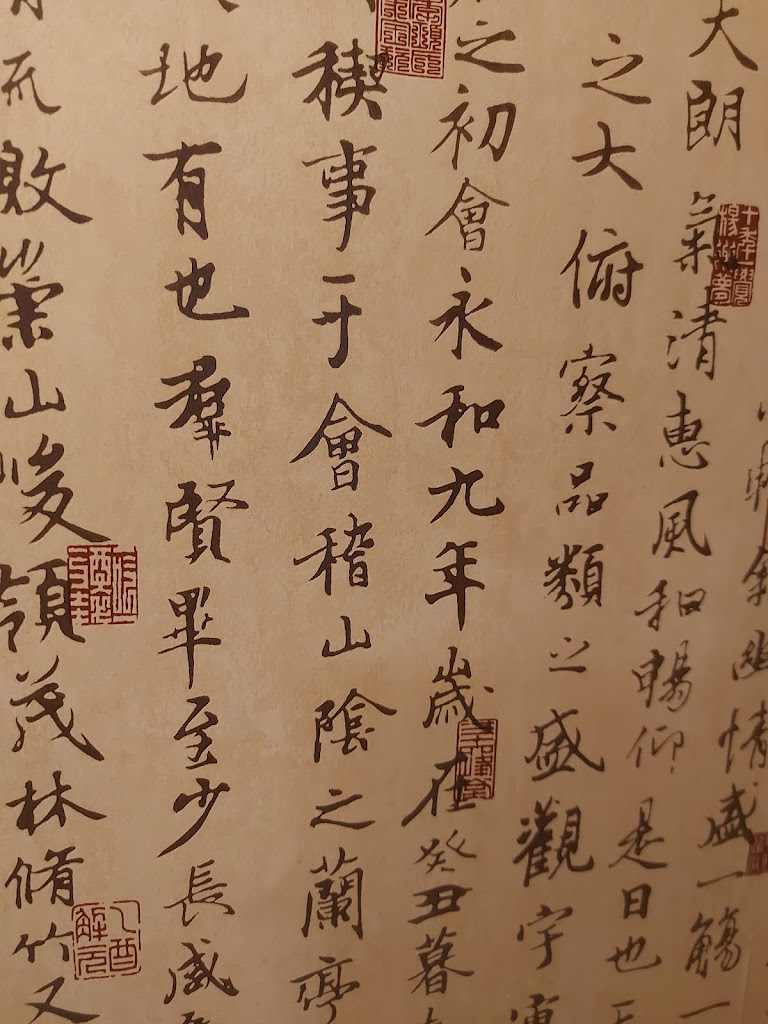 暢敘幽情盛一觴一
大朗氣清惠風和暢仰是日也
之大俯察品類之盛觀宇
之初會永和九年歲在癸丑暮
稧事于會稽山陰之蘭亭
地有也羣賢畢至少長咸
崇山峻領茂林脩竹又
乙酉解元